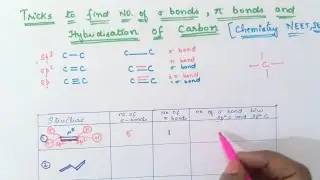 Tricks to find NO. of σ bonds, π bonds and
Hybridisation of Carbon [Chemistry NEET,
sp³ C—C C—C σ bond
sp² C=C C=C π bond
σ bond
sp C≡C C≡C π bond
σ bond
π bond
—C—
Structure no. of σ-bonds No. of π bond no. of σ bond b/w sp²C and sp²C
① 5 1
②